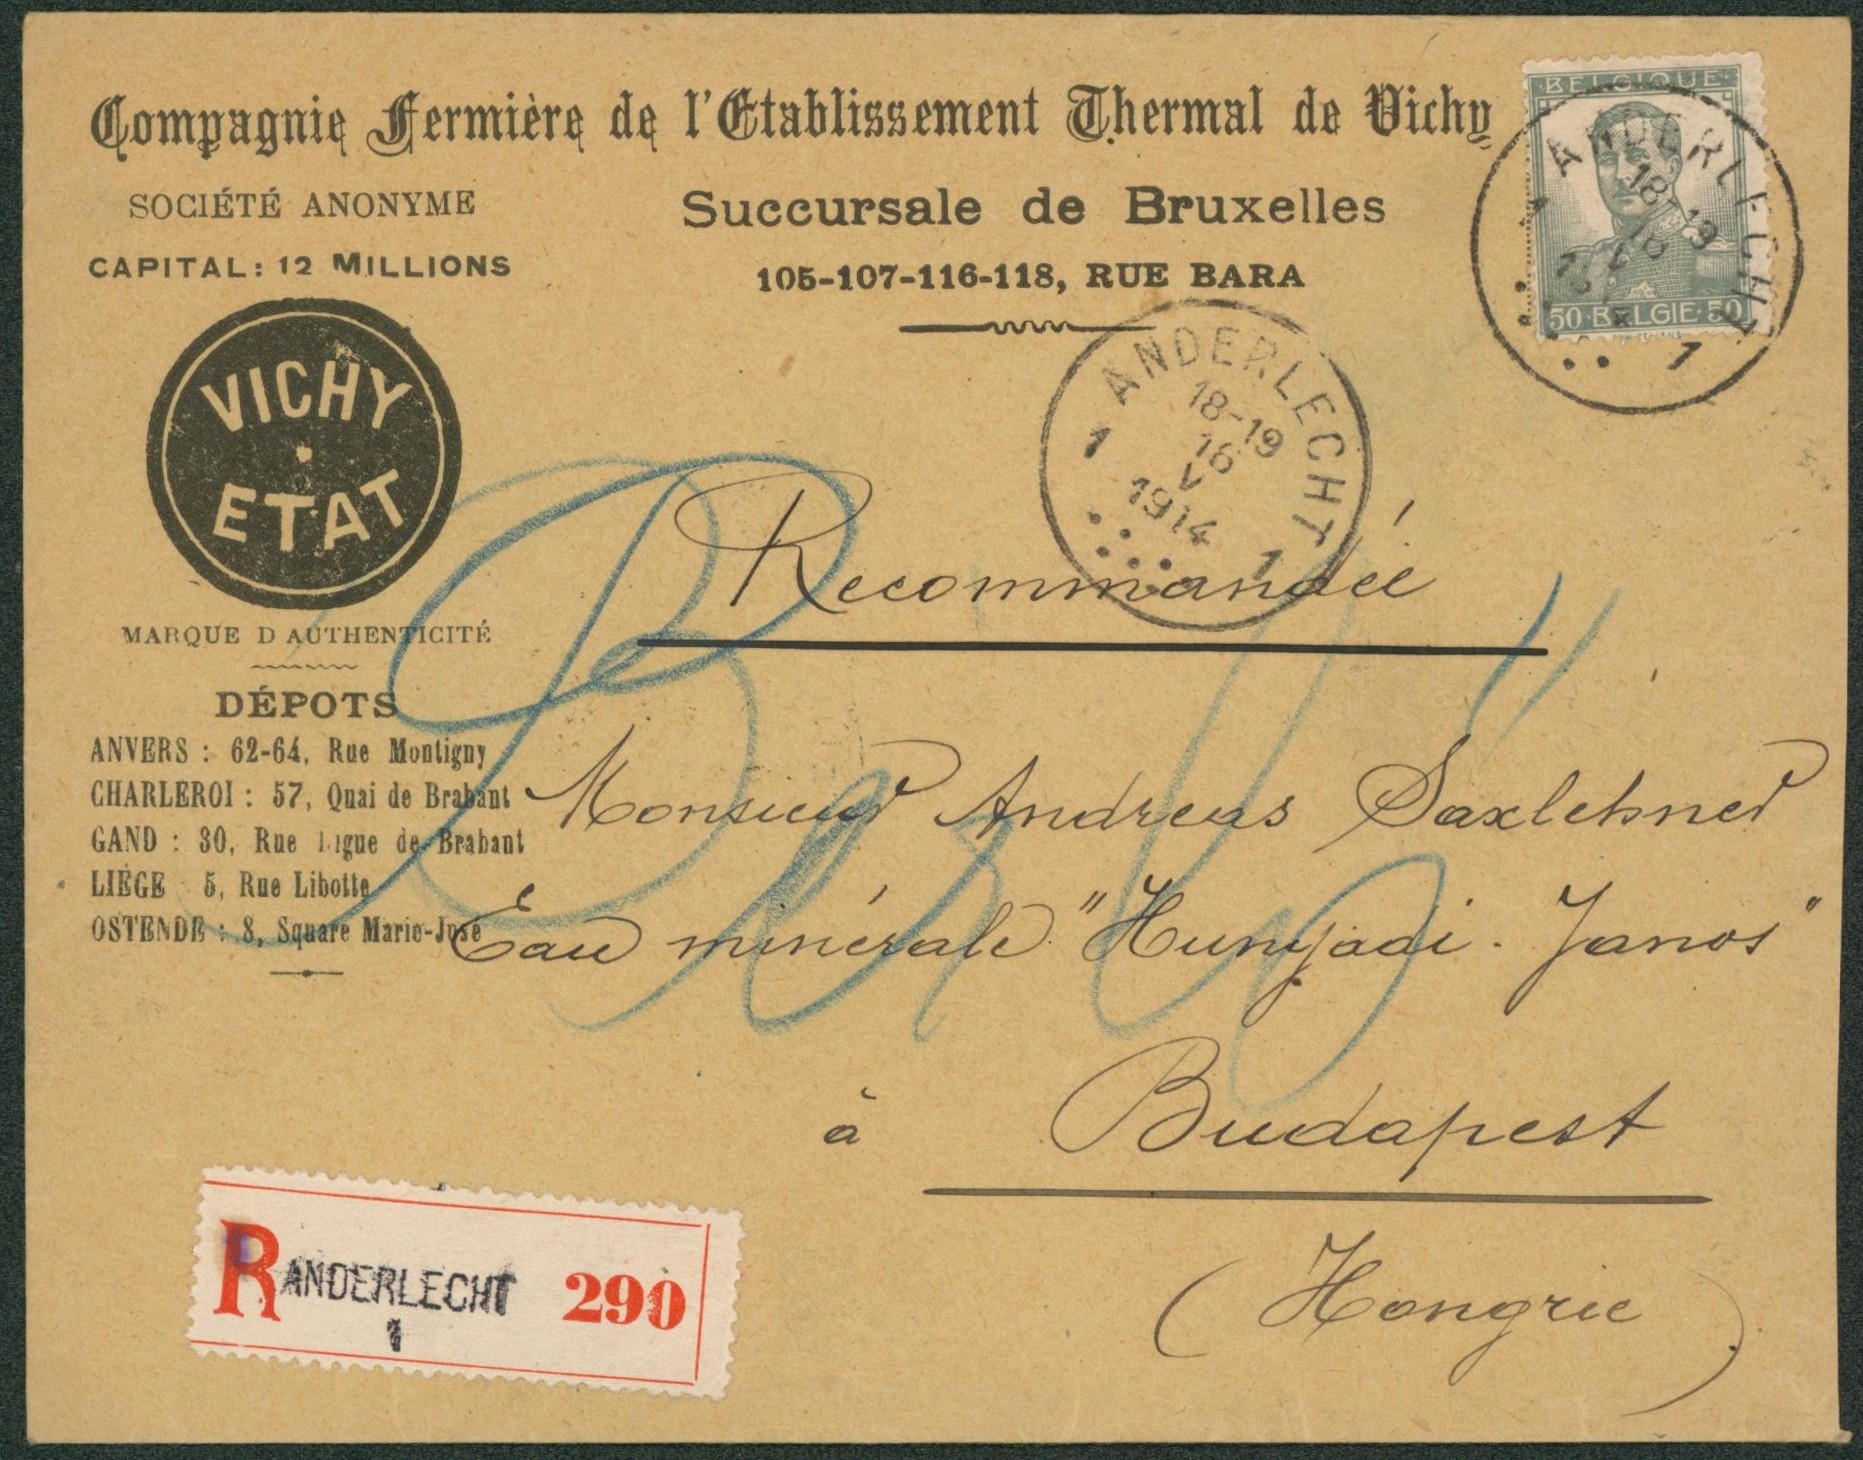 Compagnie Fermière de l'Etablissement Thermal de Vichy
SOCIÉTÉ ANONYME
CAPITAL: 12 MILLIONS
Succursale de Bruxelles
105-107-116-118, RUE BARA
BELGIQUE
50 BELGIE 50
ANDERLECHT
18-19
16
V
1
1
VICHY
ETAT
MARQUE D'AUTHENTICITÉ
ANDERLECHT
18-19
16
V
1914
1
1
Recommandée
DÉPOTS
ANVERS : 62-64, Rue Montigny
CHARLEROI : 57, Quai de Brabant
GAND : 30, Rue Digue de Brabant
LIÉGE 5, Rue Libotte
OSTENDE : 8, Square Marie-José
Monsieur Andreas Saxlehner
Eau minérale "Hunyadi - Janos"
à Budapest
(Hongrie)
R ANDERLECHT 290
1